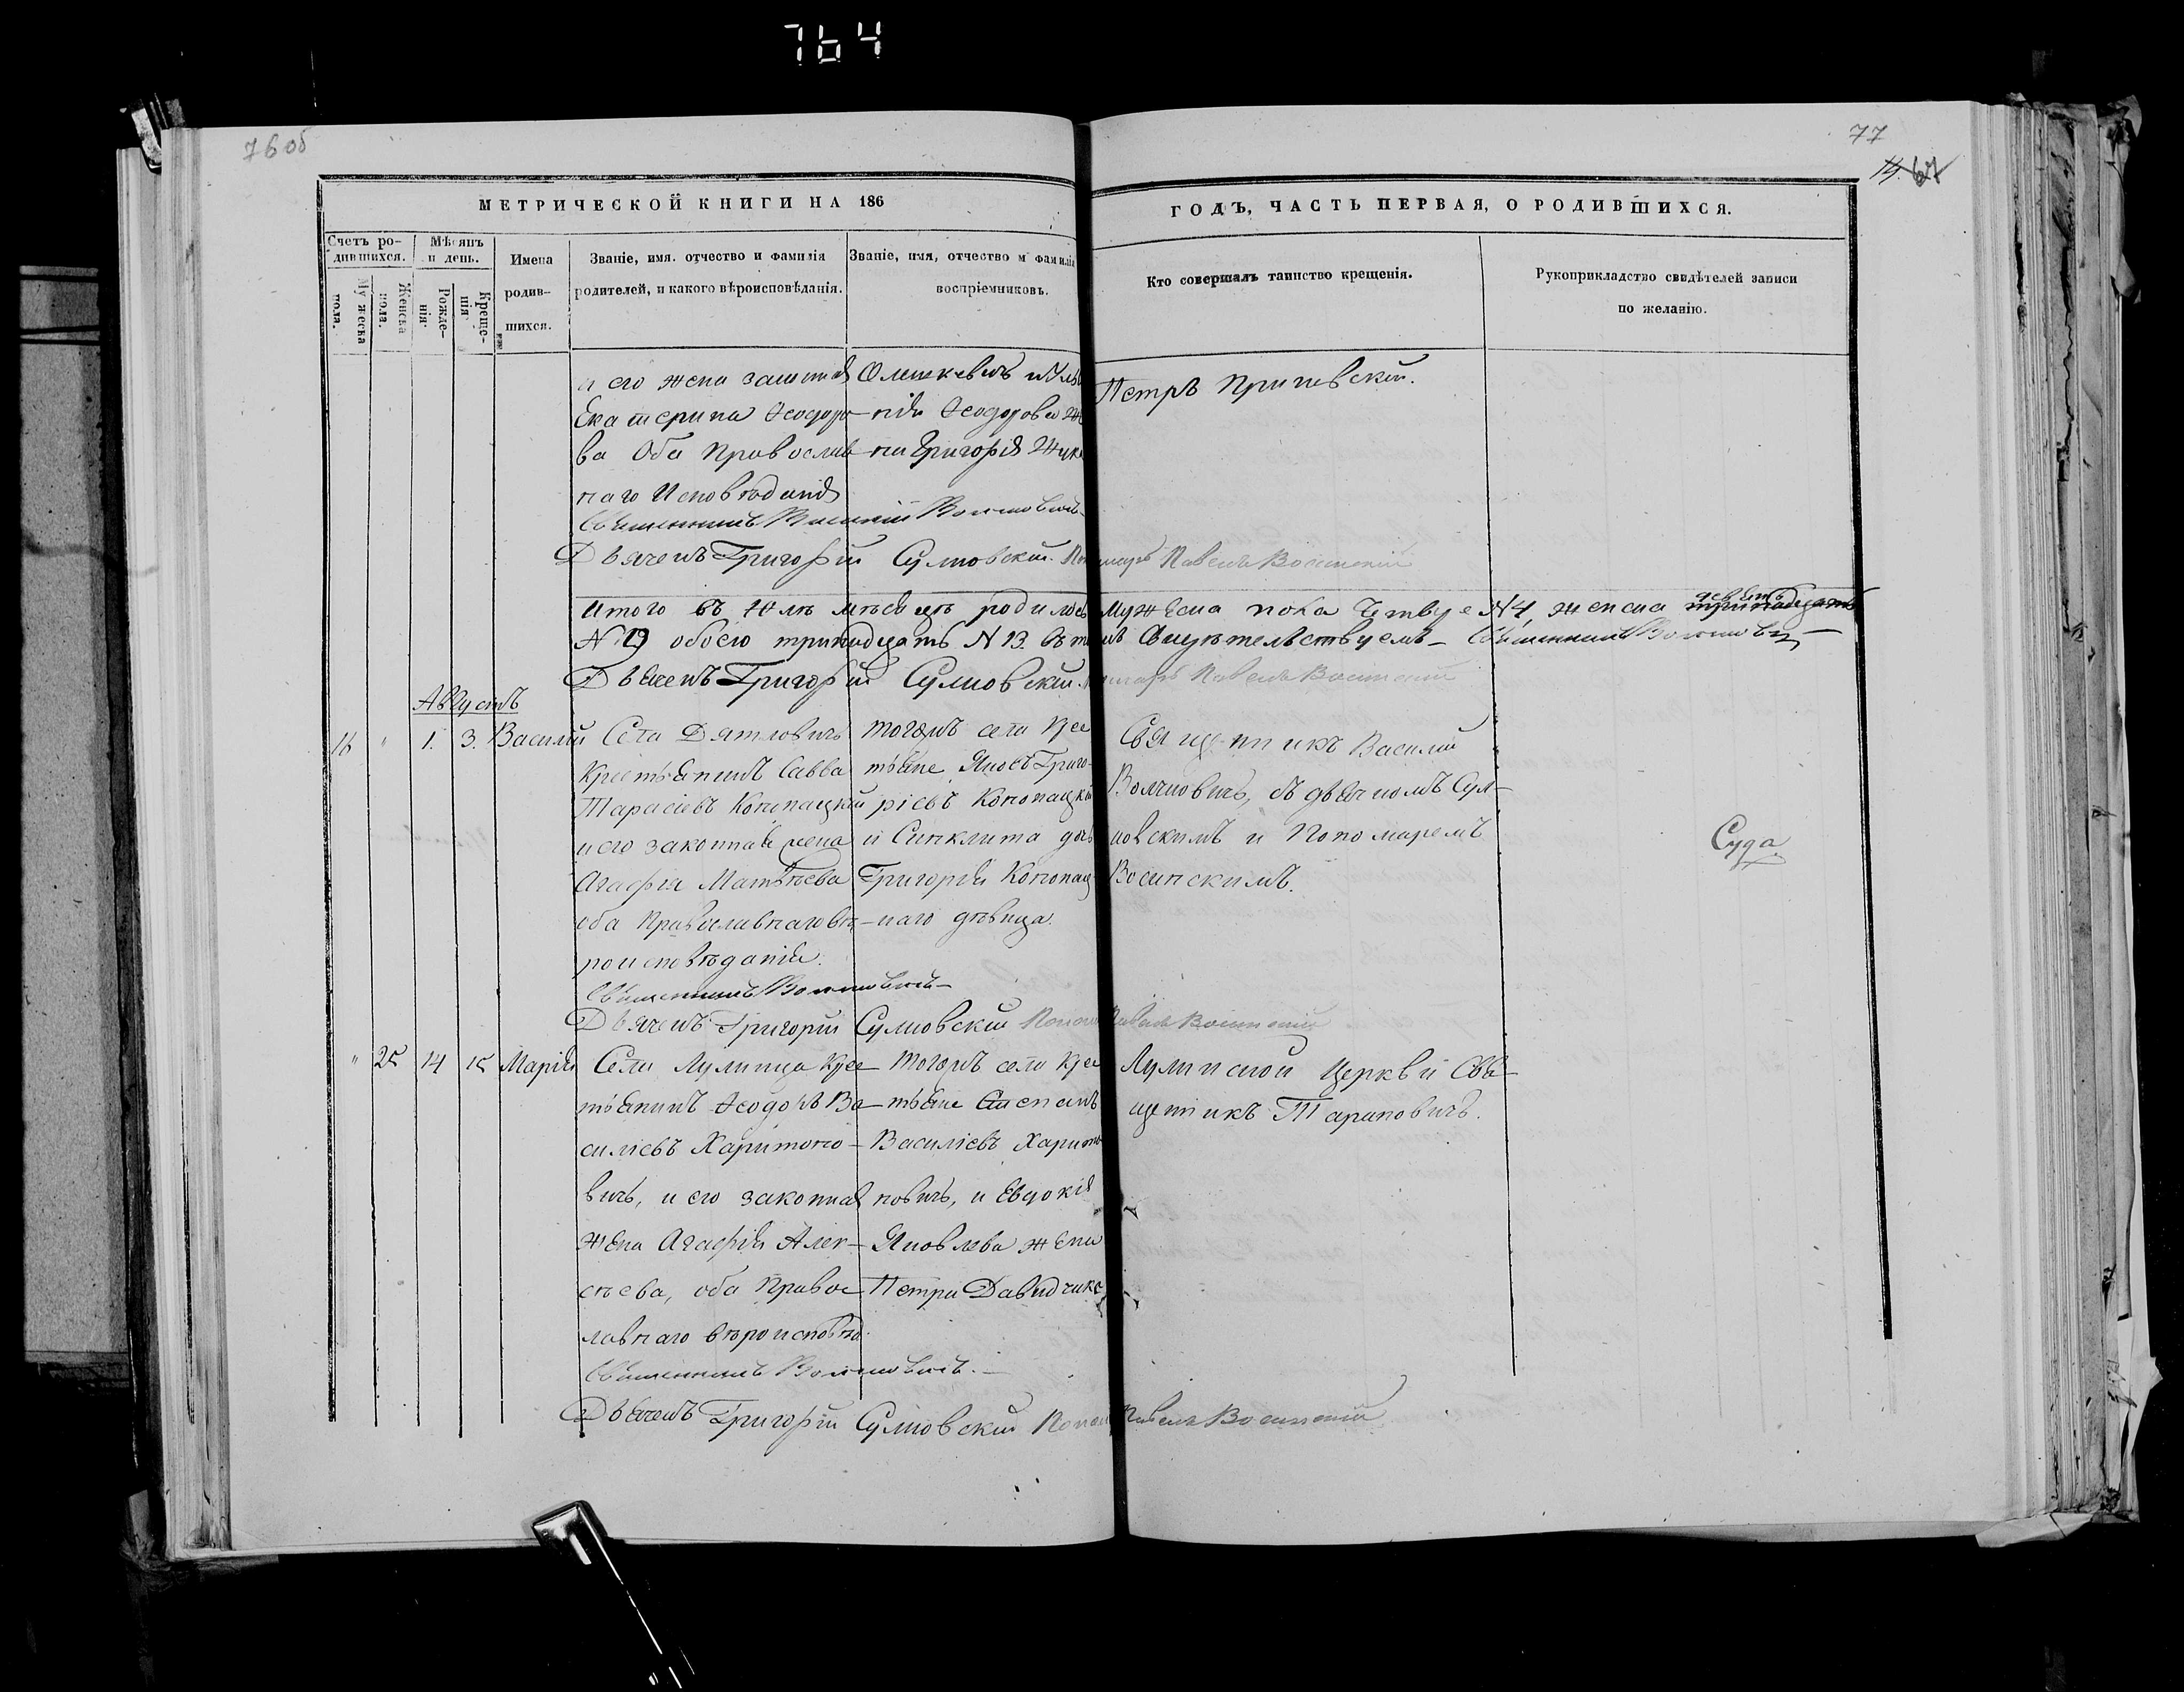 764
76 об
77
МЕТРИЧЕСКОЙ КНИГИ НА 186
ГОДЪ, ЧАСТЬ ПЕРВАЯ, О РОДИВШИХСЯ.
Счетъ ро-
дившихся.
Мужеска
пола.
Женска
пола.
Мѣсяцъ
и день.
Рожде-
нія
Креще-
нія
Имена
родив-
шихся.
Званіе, имя, отчество и фамилія
родителей, и какого вѣроисповѣданія.
Званіе, имя, отчество и фамилія
воспріемниковъ.
Кто совершалъ таинство крещенія.
Рукоприкладство свидѣтелей записи
по желанію.
и его жена законная
Екатерина Ѳеодоро-
ва Оба Православ-
наго Исповѣданія
Олешкевичъ и
Ѳеодорова
на Григорія Жук
Петръ
Священникъ Василій Волчковичъ
Дьячекъ Григорій Сулковскій Павелъ Восинскій
Итого въ Юлѣ мѣсяцѣ родилось мужеска пола N 4, женска девять
N 9 обоего тринадцать N 13. Свидѣтельствуемъ – Священникъ Волчковичъ
Дьячекъ Григорій Сулковскій Павелъ Восинскій
Августъ
16 " 1. 3. Василій
Села Дятловичъ
Крестьянинъ Савва
Тарасіевъ Конопацкій
и его законная жена
Агафія Матѳеева
оба Православнаго вѣ-
роисповѣданія.
тогожъ села Крес
тьяне Яковъ Григо-
ріевъ Конопацкій
и Синклита дочь
Григорія Конопац-
каго дѣвица.
Священникъ Василій
Волчковичъ, съ дьячкомъ Сул-
ковскимъ и Пономаремъ
Восинскимъ.
Суда
Священникъ Волчковичъ
Дьячекъ Григорій Сулковскій Павелъ Восинскій
" 25 14 15 Марія
Села Лулинца Крес-
тьянинъ Ѳеодоръ Ва-
силіевъ Харитоно-
вичъ, и его законная
жена Агафія Алек-
сѣева, оба Правос
лавнаго вѣроисповѣд.
тогожъ села Крес
тьяне Степанъ
Василіевъ Харито
новичъ, и Евдокія
Яковлева жена
Петра Давидчика
Лулинской Церкви Свя-
щеникъ Тарановичъ.
Священникъ Волчковичъ.
Дьячекъ Григорій Сулковскій Павелъ Восинскій